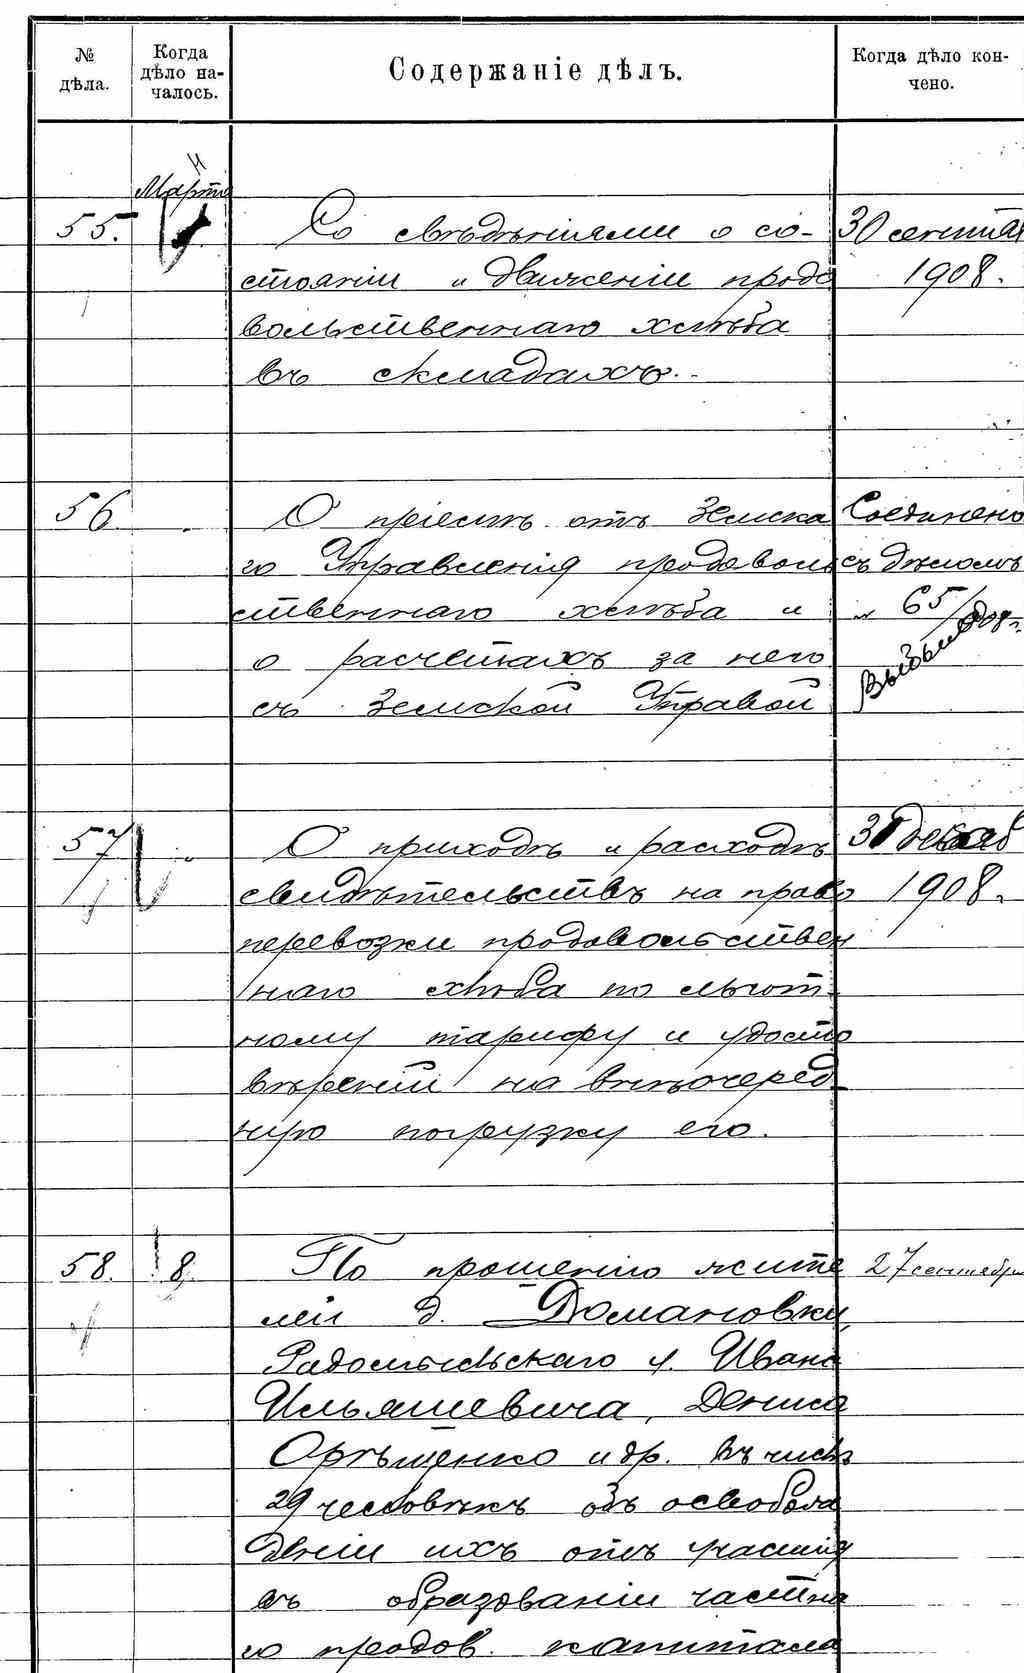 № дѣла.
Когда дѣло началось.
Содержаніе дѣлъ.
Когда дѣло кончено.
Марта
55.
Со свѣдѣніями о со-
стояніи и движеніи продо
вольственнаго хлѣба
въ складахъ.
30 сентяб
1908.
56
О пріемѣ отъ Земска
го Управленія продоволь
ственнаго хлѣба и
о расчетахъ за него
съ Земской Управой
Соединено
съ дѣломъ
№ 65/908 г.
57
О приходѣ и расходѣ
свидѣтельствъ на право
перевозки продовольствен
наго хлѣба по льгот-
ному тарифу и удосто
вѣреній на внѣочеред
ную погрузку его.
31 декаб
1908.
58.
8
По прошенію жите
лей д. Домановки,
Радомысльскаго у. Ивана
Ильяшевича, Дениса
и др. въ числѣ
29 человѣкъ объ освобож
деніи ихъ отъ участія
въ образованіи частна
го продов. капитала
27 сентября